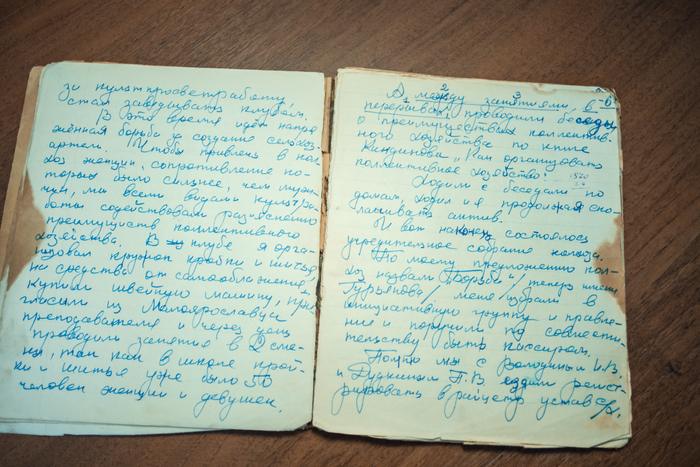 за культпросветработу
стал заведывать клубом.
В это время идёт напря
жённая борьба за создание сельхоз
артели. Чтобы привлечь в кол
хоз женщин, сопротивление ко-
торых было сильнее, чем муж
чин, мы всеми видами культра
боты содействовали разъяснению
преимуществ коллективного
хозяйства. В клубе я орга-
низовал кружок кройки и шитья
на средства от самообложения
купили швейную машину, при
гласили из Малоярославца
преподавателя и через день
проводили занятия в 2 сме-
ны, так как в школе крой-
ки и шитья уже было 50
человек женщин и девушек.
А между занятиями, в
перерывах проводили беседы
о преимуществах коллектив-
ного хозяйства по книге
"Как организовать
коллективное хозяйство".
Ходили с беседами по
домам, ходил и я продолжая спо-
лачивать актив.
И вот наконец состоялось
учредительное собрание колхоза.
По моему предложению кол-
хоз назвали "Борьба" /теперь имени
Гурьянова/ меня избрали в
инициативную группу и правле-
ние и поручили по совмести-
тельству быть кассиром.
мы с Володиным И.В.
и П.В. ездили регист-
рировать в райцентр устав с/х.